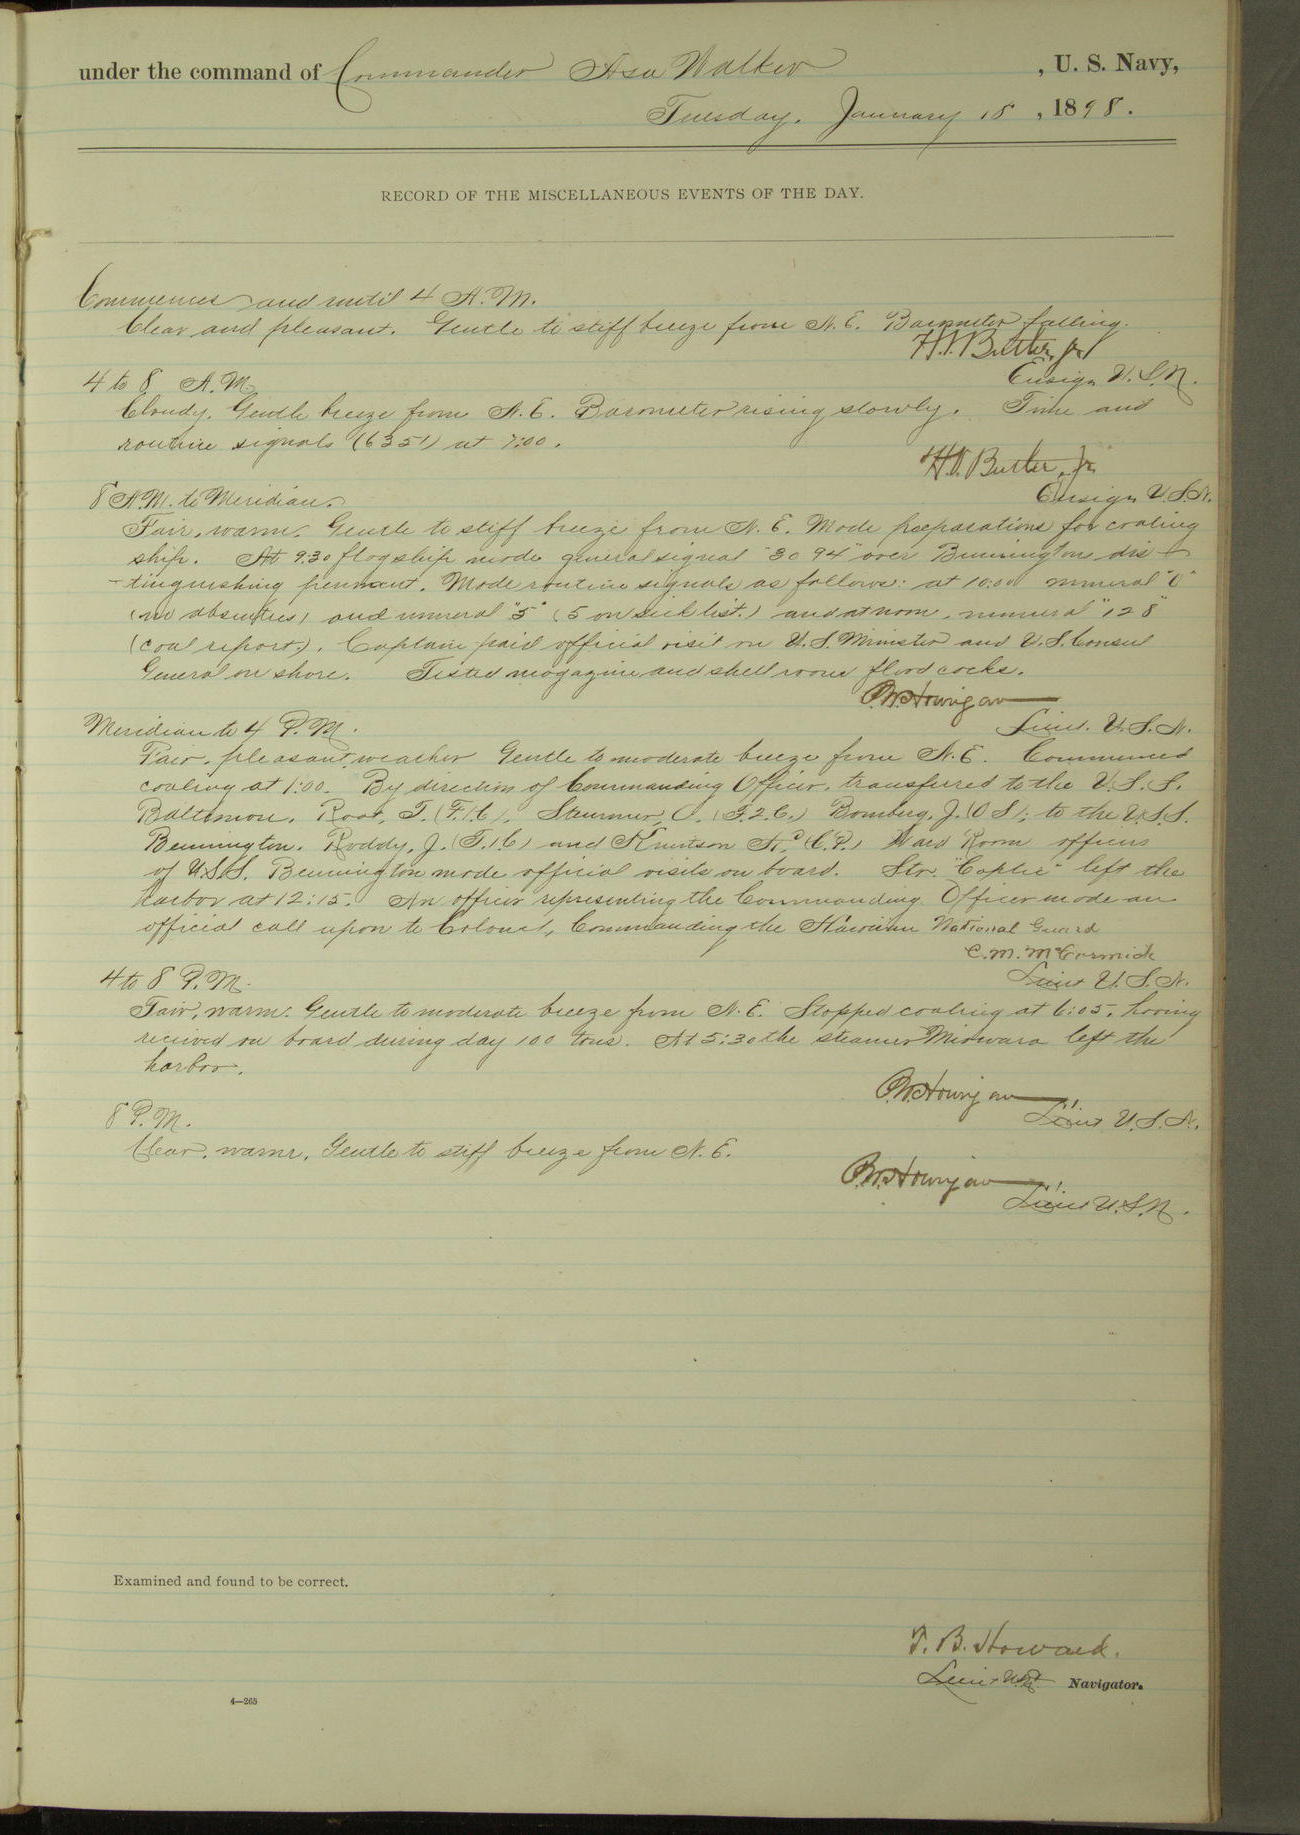 under the command of Commander Asa Walker, U. S. Navy,
Tuesday, January 18, 1898.
RECORD OF THE MISCELLANEOUS EVENTS OF THE DAY.
Commences and until 4 A.M.
Clear and pleasant. Gentle to stiff breeze from N.E. Barometer falling.
Ensign U.S.N.
4 to 8 A.M.
Cloudy. Gentle breeze from N.E. Barometer rising slowly. Time and
routine signals (6351) at 7:00.
Butler, Jr.
Ensign U.S.N.
8 A.M. to Meridian.
Fair, warm. Gentle to stiff breeze from N.E. Made preparations for coaling
ship. At 9:30 flagship made general signal "3094" over Bennington dis-
-tinguishing pennant. Made routine signals as follows: at 10:00 numeral "0"
(no absentees) and numeral "5" (5 on sick list.) and at noon, numeral "128"
(coal report.). Captain paid official visit on U.S. Minister and U.S. Consul
General on shore. Tested magazine and shell room flood cocks.
P.W. Hourigan
Lieut. U.S.N.
Meridian to 4 P.M.
Fair, pleasant weather Gentle to moderate breeze from N.E. Commenced
coaling at 1:00. By direction of Commanding Officer, transferred to the U.S.S.
Baltimore, Root, T. (F.1.C), Steurner, O. (F.2.C.) Bomberg, J. (O.S); to the U.S.S.
Bennington. Roddy, J. (F.1C) and Knutson (C.P.) Ward Room officers
of U.S.S. Bennington made official visits on board. Str. "Coptic" left the
harbor at 12:15. An officer representing the Commanding Officer made an
official call upon te Colonel, Commanding the Hawaiian National Guard
C.M. McCormick
Lieut U.S.N.
4 to 8 P.M.
Fair, warm. Gentle to moderate breeze from N.E. Stopped coaling at 6:05, having
received on board during day 100 tons. At 5:30 the steamer Miowara left the
harbor.
P.W. Hourigan
Lieut U.S.N.
8 P.M.
Clear, warm, Gentle to stiff breeze from N.E.
P.W. Hourigan
Lieut U.S.N.
Examined and found to be correct.
T. B. Howard.
Lieut U.S.N. Navigator.
4—265